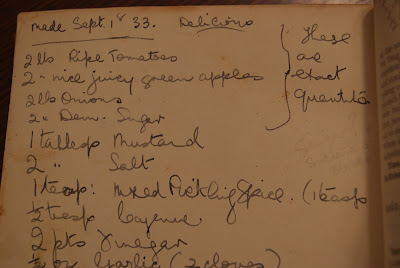 made Sept. 1st 33. Delicious
2 lbs Ripe Tomatoes
2 " nice juicy green apples
2 lbs Onions
2 " Dem. Sugar
These
are
exact
quantities
1 tablesp Mustard
2 " Salt
1 teasp: Mixed Pickling Spice. (1 teasp
½ teasp Cayenne.
2 pts Vinegar
½ oz Garlic (2 cloves)